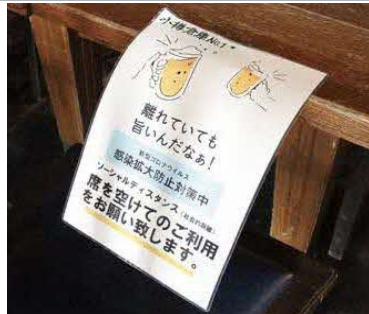 小樽倉庫No.1
離れていても
旨いんだなぁ！
新型コロナウイルス
感染拡大防止対策中
ソーシャルディスタンス（社会的距離）
席を空けてのご利用
をお願い致します。